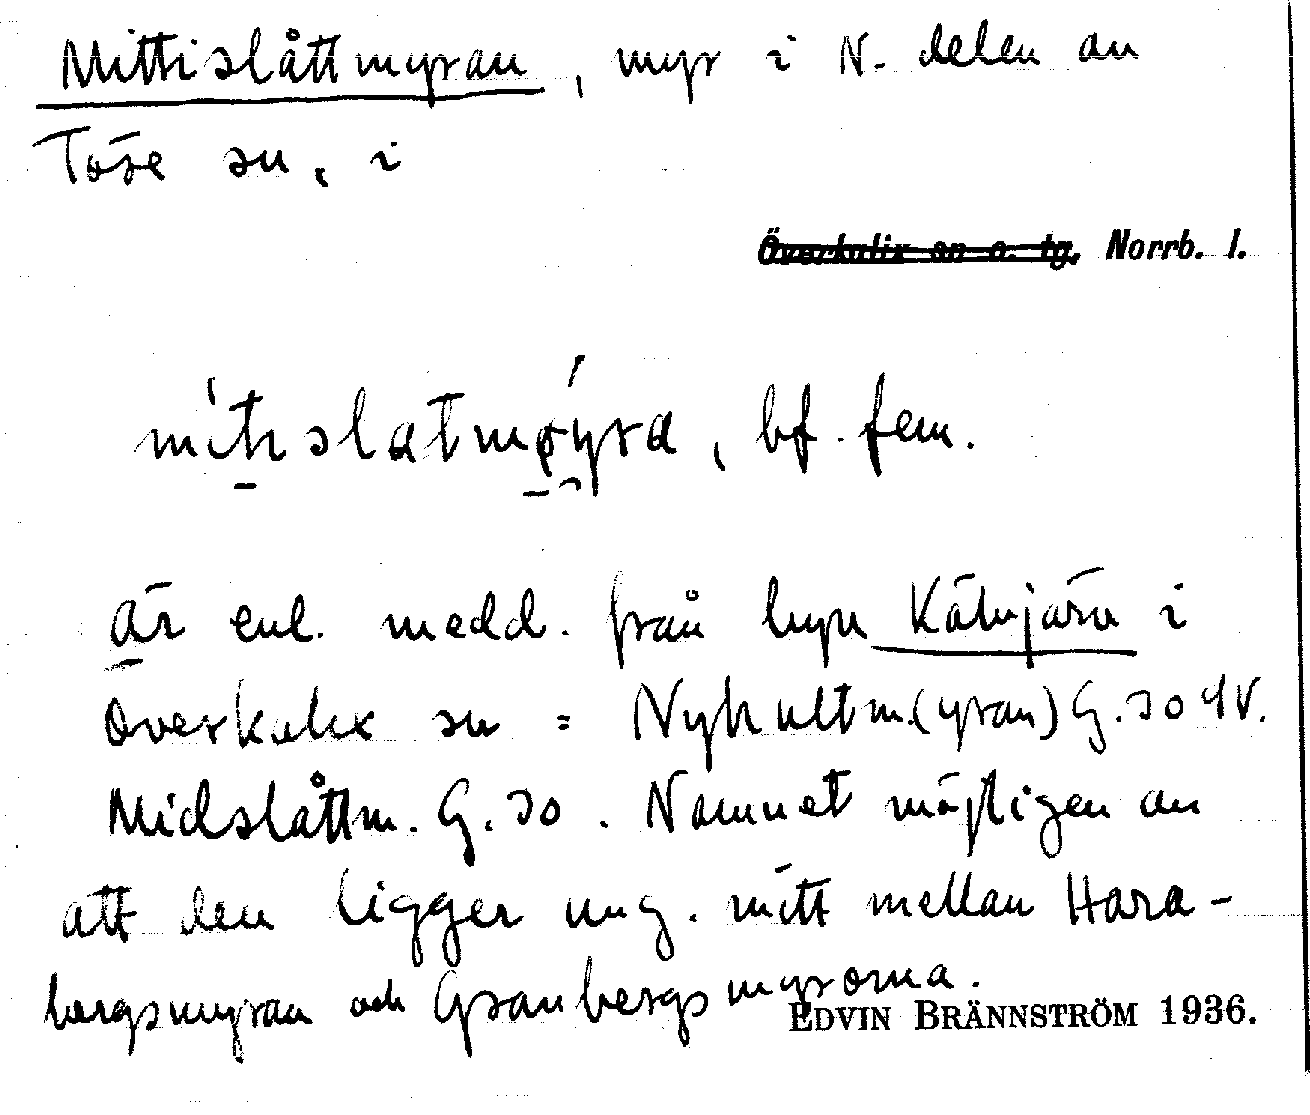 Mittislåttmyran, myr i N. delen av
Töre sn, i
Överkalix sn o. tg, Norrb. l.
mitislatmøyra, bf. fem.
är enl. medd. från byn Kälvjärv i
Överkalix sn = Nyhultm.(yran) G. 30 4V.
Midslåttm. G. 30. Namnet möjligen av
att den ligger ung. mitt mellan Hara-
bergsmyran och Granbergsmyrorna.
EDVIN BRÄNNSTRÖM 1936.